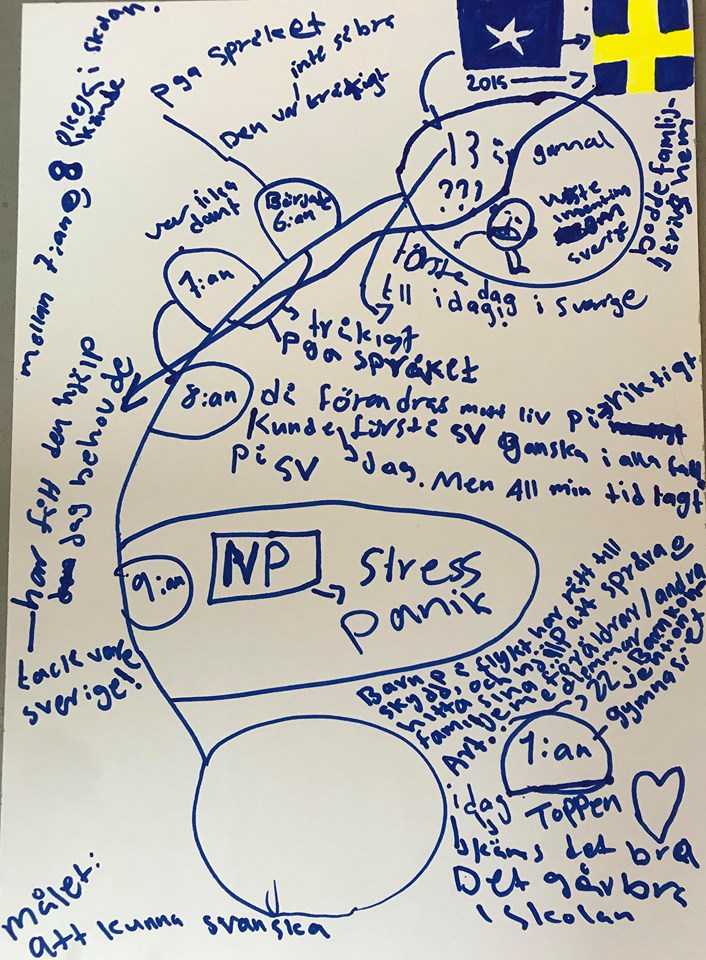 2015
13 år gammal
???
bodde familj-
jkring hem
första dag
till idag i sverige
pga språket
Den var kråkigt
inte så bra
Började
6:an
var lika
dant
7:an
tråkigt
pga språket
mellan 7:an og 8
i skolan.
kände
har fått den hjälp
jag behövde
tack vare
sverige!!
8:an
då förendras mott liv på riktigt
Kunde förste sv ganska i alla fall
på sv dag. Men All min tid tagt
9:an
NP
stress
panik
Barn på flykt har rätt till
skydd, och hjälp att spåra o
hitta sina föräldrar/andra
familjemedlemmar
Art. 22 i Barnkon
ventionet
1:an
gymnasiet
idag
Toppen
känns det bra
Det går bra
i skolan
målet:
att kunna svanska